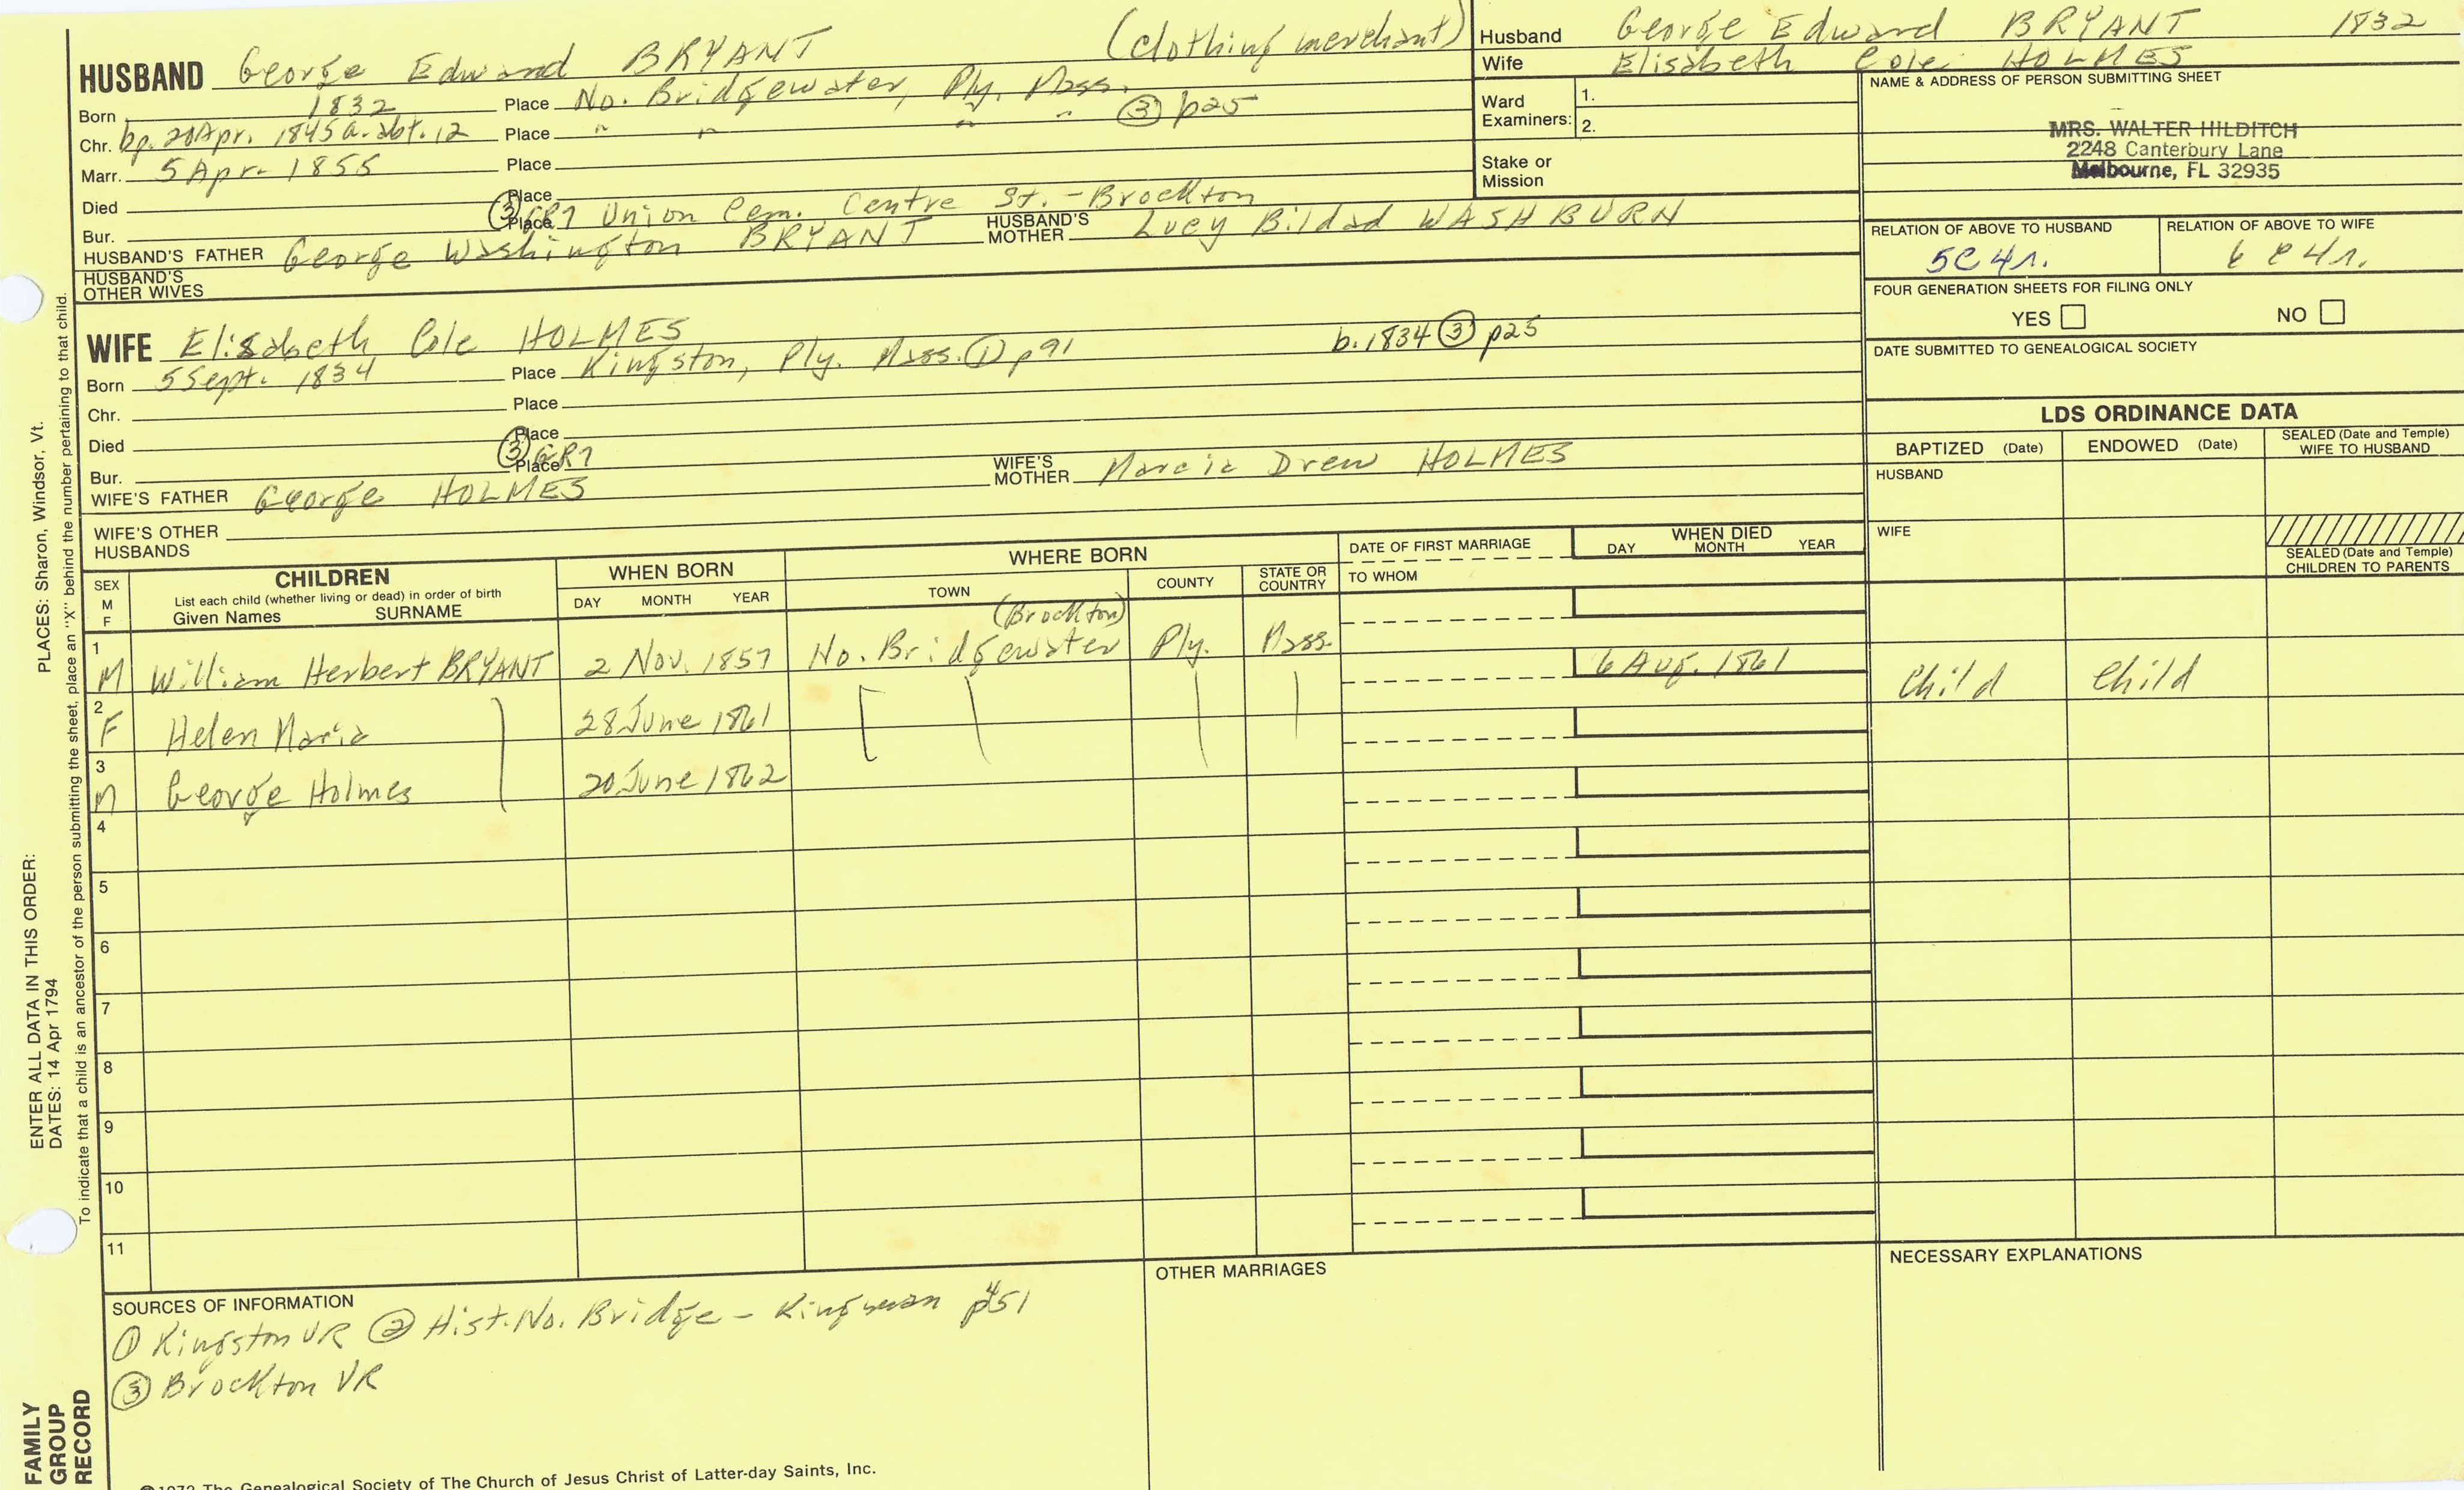 HUSBAND George Edward BRYANT (clothing merchant)
Born 1832 Place No. Bridgewater, Ply. Mass.
Chr. bp. 20 Apr. 1845 a. abt. 12 Place " " " " ③ p25
Marr. 5 Apr. 1855 Place
Died Place
Bur. Place ③ GR7 Union Cem. Centre St. - Brockton
HUSBAND'S FATHER George Washington BRYANT HUSBAND'S MOTHER Lucy Bildad WASHBURN
HUSBAND'S OTHER WIVES
WIFE Elisabeth Cole HOLMES b. 1834 ③ p25
Born 5 Sept. 1834 Place Kingston, Ply. Mass. ① p 91
Chr. Place
Died Place
Bur. Place ③ GR7
WIFE'S FATHER George HOLMES WIFE'S MOTHER Marcia Drew HOLMES
WIFE'S OTHER HUSBANDS
Husband George Edward BRYANT 1832
Wife Elisabeth Cole HOLMES
Ward Examiners: 1.
2.
Stake or Mission
NAME & ADDRESS OF PERSON SUBMITTING SHEET
MRS. WALTER HILDITCH
2248 Canterbury Lane
Melbourne, FL 32935
RELATION OF ABOVE TO HUSBAND RELATION OF ABOVE TO WIFE
5C 4r. 6 C 4r.
FOUR GENERATION SHEETS FOR FILING ONLY
YES NO
DATE SUBMITTED TO GENEALOGICAL SOCIETY
LDS ORDINANCE DATA
BAPTIZED (Date) ENDOWED (Date) SEALED (Date and Temple) WIFE TO HUSBAND
HUSBAND
WIFE
SEALED (Date and Temple) CHILDREN TO PARENTS
SEX M F CHILDREN List each child (whether living or dead) in order of birth Given Names SURNAME
WHEN BORN DAY MONTH YEAR
WHERE BORN TOWN COUNTY STATE OR COUNTRY
DATE OF FIRST MARRIAGE TO WHOM
WHEN DIED DAY MONTH YEAR
(Brockton)
1 M William Herbert BRYANT 2 Nov. 1857 No. Bridgewater Ply. Mass. 6 Aug. 1861 Child Child
2 F Helen Maria 28 June 1861
3 M George Holmes 20 June 1862
4
5
6
7
8
9
10
11
SOURCES OF INFORMATION
① Kingston VR ② Hist. No. Bridge - Kingman p451
③ Brockton VR
OTHER MARRIAGES
NECESSARY EXPLANATIONS
©1972 The Genealogical Society of The Church of Jesus Christ of Latter-day Saints, Inc.
ENTER ALL DATA IN THIS ORDER:
DATES: 14 Apr 1794 PLACES: Sharon, Windsor, Vt.
To indicate that a child is an ancestor of the person submitting the sheet, place an "X" behind the number pertaining to that child.
FAMILY
GROUP
RECORD